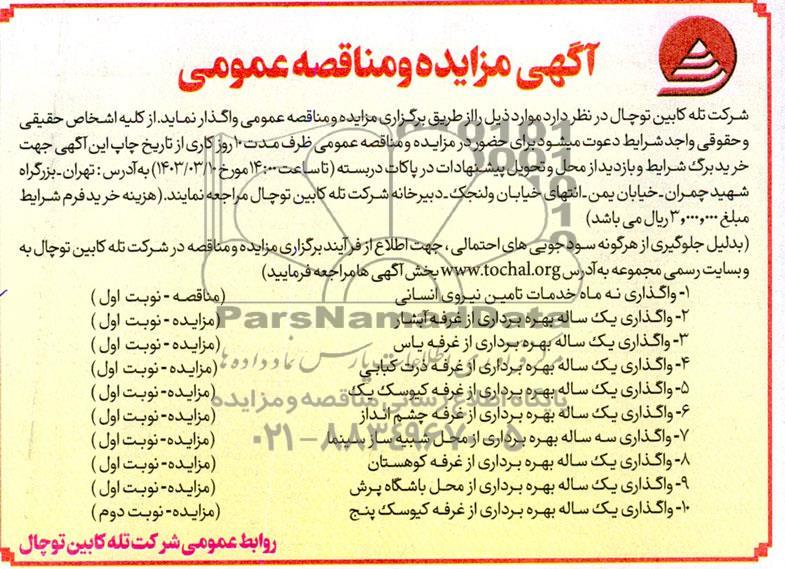 آگهی مزایده ومناقصه عمومی
شرکت تله کابین توچال در نظر دارد موارد ذیل را از طریق برگزاری مزایده و مناقصه عمومی واگذار نماید. از کلیه اشخاص حقیقی
و حقوقی واجد شرایط دعوت میشود برای حضور در مزایده و مناقصه عمومی ظرف مدت ۱۰ روز کاری از تاریخ چاپ این آگهی جهت
خرید برگ شرایط و بازدید از محل و تحویل پیشنهادات در پاکات دربسته (تا ساعت ۱۴:۰۰ مورخ ۱۴۰۳/۰۳/۱۰) به آدرس : تهران ـ بزرگراه
شهید چمران ـ خیابان یمن ـ انتهای خیابان ولنجک ـ دبیرخانه شرکت تله کابین توچال مراجعه نمایند. (هزینه خرید فرم شرایط
مبلغ ۳,۰۰۰,۰۰۰ ریال می باشد)
(بدلیل جلوگیری از هرگونه سودجویی های احتمالی ، جهت اطلاع از فرآیند برگزاری مزایده و مناقصه در شرکت تله کابین توچال به
وبسایت رسمی مجموعه به آدرس www.tochal.org بخش آگهی ها مراجعه فرمایید)
۱- واگذاری نه ماه خدمات تامین نیروی انسانی (مناقصه - نوبت اول )
۲- واگذاری یک ساله بهره برداری از غرفه آبشار (مزایده- نوبت اول )
۳- واگذاری یک ساله بهره برداری از غرفه یاس (مزایده- نوبت اول )
۴- واگذاری یک ساله بهره برداری از غرفه ذرت کبابی (مزایده- نوبت اول )
۵- واگذاری یک ساله بهره برداری از غرفه کیوسک یک (مزایده- نوبت اول )
۶- واگذاری یک ساله بهره برداری از غرفه چشم انداز (مزایده- نوبت اول )
۷- واگذاری سه ساله بهره برداری از محل شبیه ساز سینما (مزایده- نوبت اول )
۸- واگذاری یک ساله بهره برداری از غرفه کوهستان (مزایده- نوبت اول )
۹- واگذاری یک ساله بهره برداری از محل باشگاه پرش (مزایده- نوبت اول )
۱۰- واگذاری یک ساله بهره برداری از غرفه کیوسک پنج (مزایده- نوبت دوم )
روابط عمومی شرکت تله کابین توچال
ParsNamadData
پایگاه اطلاع رسانی مناقصه و مزایده
۰۲۱-۸۸۳۴۹۶۷۰-۵